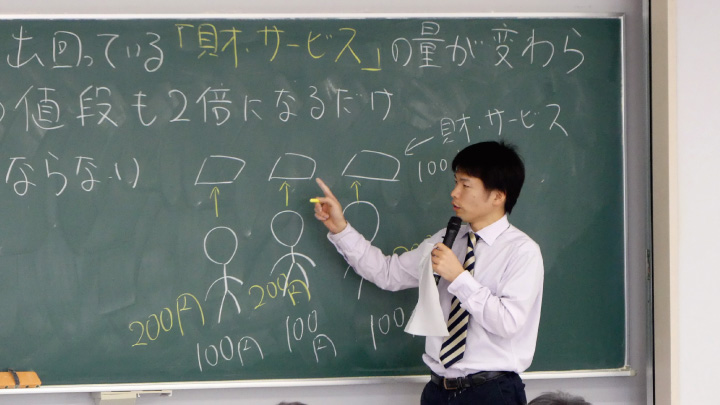 出回っている「財・サービス」の量が変わら
値段も2倍になるだけ
財・サービス
ならない
100
200円
200円
200
100円
100円
100